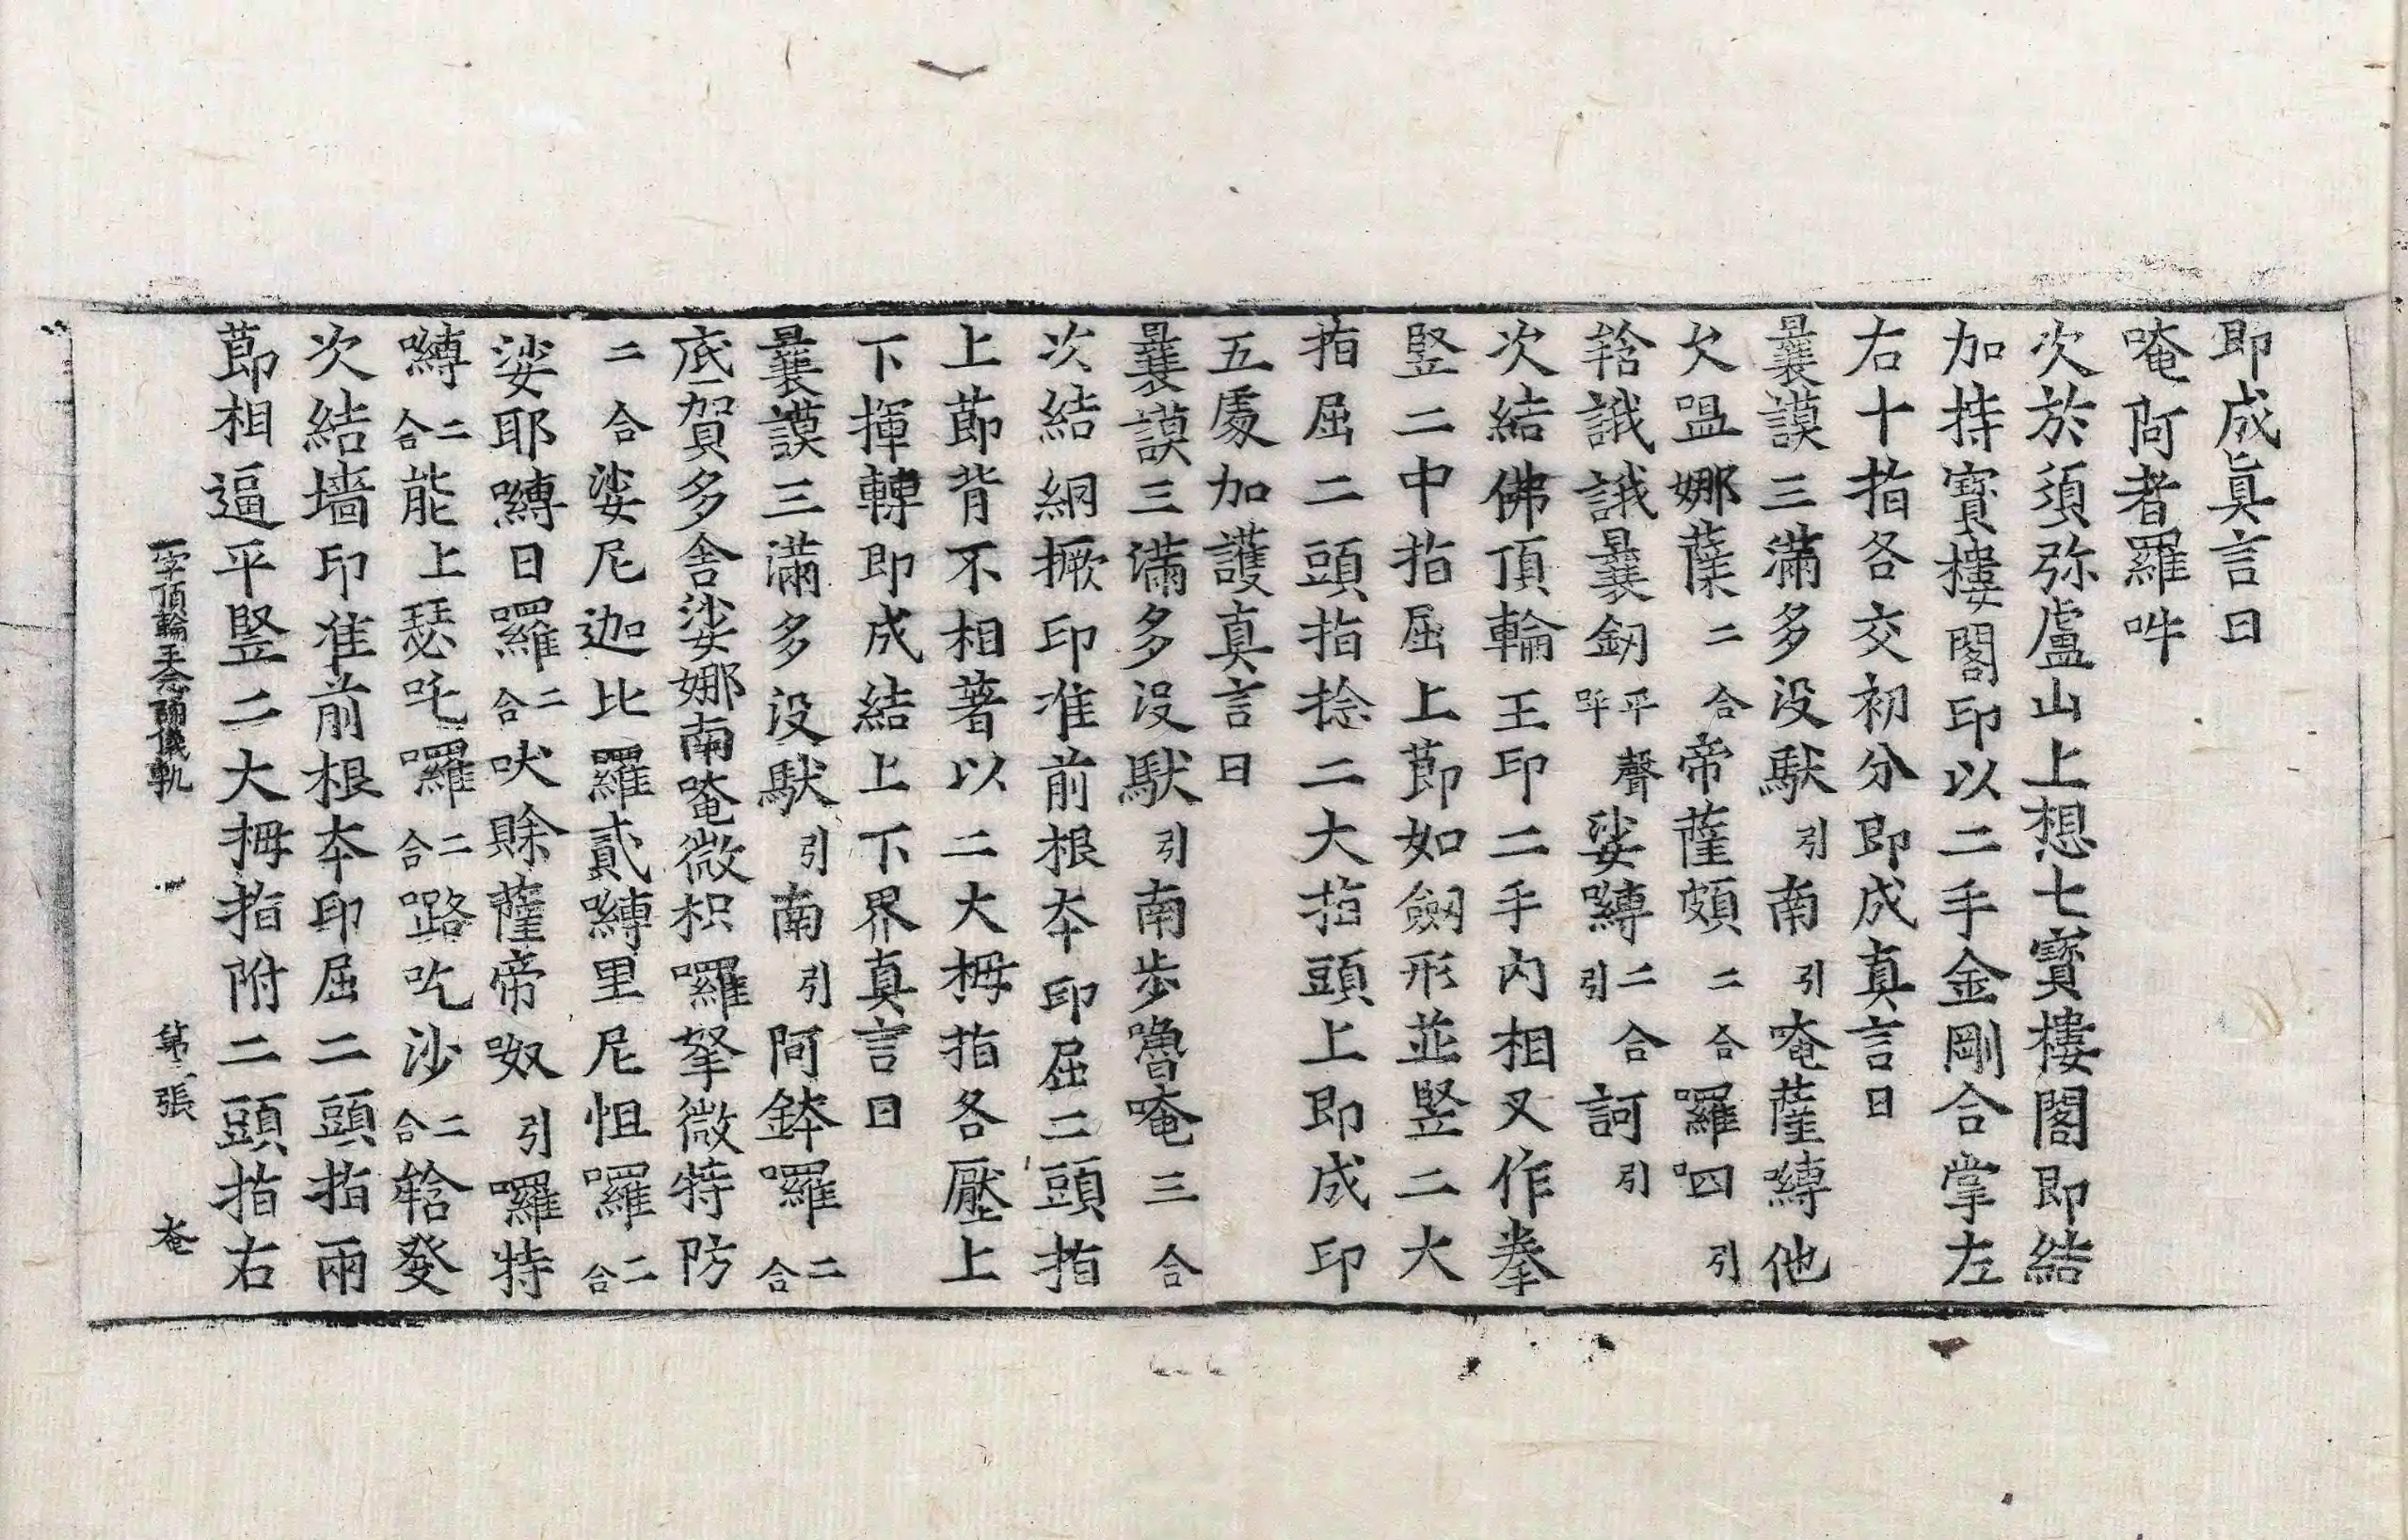 即成眞言曰
唵阿者羅吽
次於須弥盧山上想七寶樓閣即結
加持寶樓閣印以二手金剛合掌左
右十指各交初分即成真言曰
曩謨三滿多没馱引南引唵薩嚩他
欠嗢娜蘖二合帝薩頗二合囉呬引
䤴誐誐曩釼平聲呼娑嚩二合引訶引
次結佛頂輪王印二手內相叉作拳
竪二中指屈上莭如劒形並竪二大
指屈二頭指捻二大指頭上即成印
五處加護真言曰
曩謨三滿多没馱引南步嚕唵三合
次結綱橛印准前根夲印屈二頭指
上莭背不相著以二大拇指各壓上
下揮轉即成結上下界真言曰
曩謨三滿多没馱引南引阿鉢囉二合
底賀多舍娑娜南唵微枳囉拏微特防
二合娑尼迦比羅貳嚩里尼怛囉二合
娑耶嚩日囉二合吠賖薩帝呶引囉特
嚩二合能上瑟吒囉二合㗰吃沙二合䤴發
次結墻印准前根夲印屈二頭指兩
莭相逼平竪二大拇指附二頭指右
一字頂輪王念誦儀軌 第二張 菴